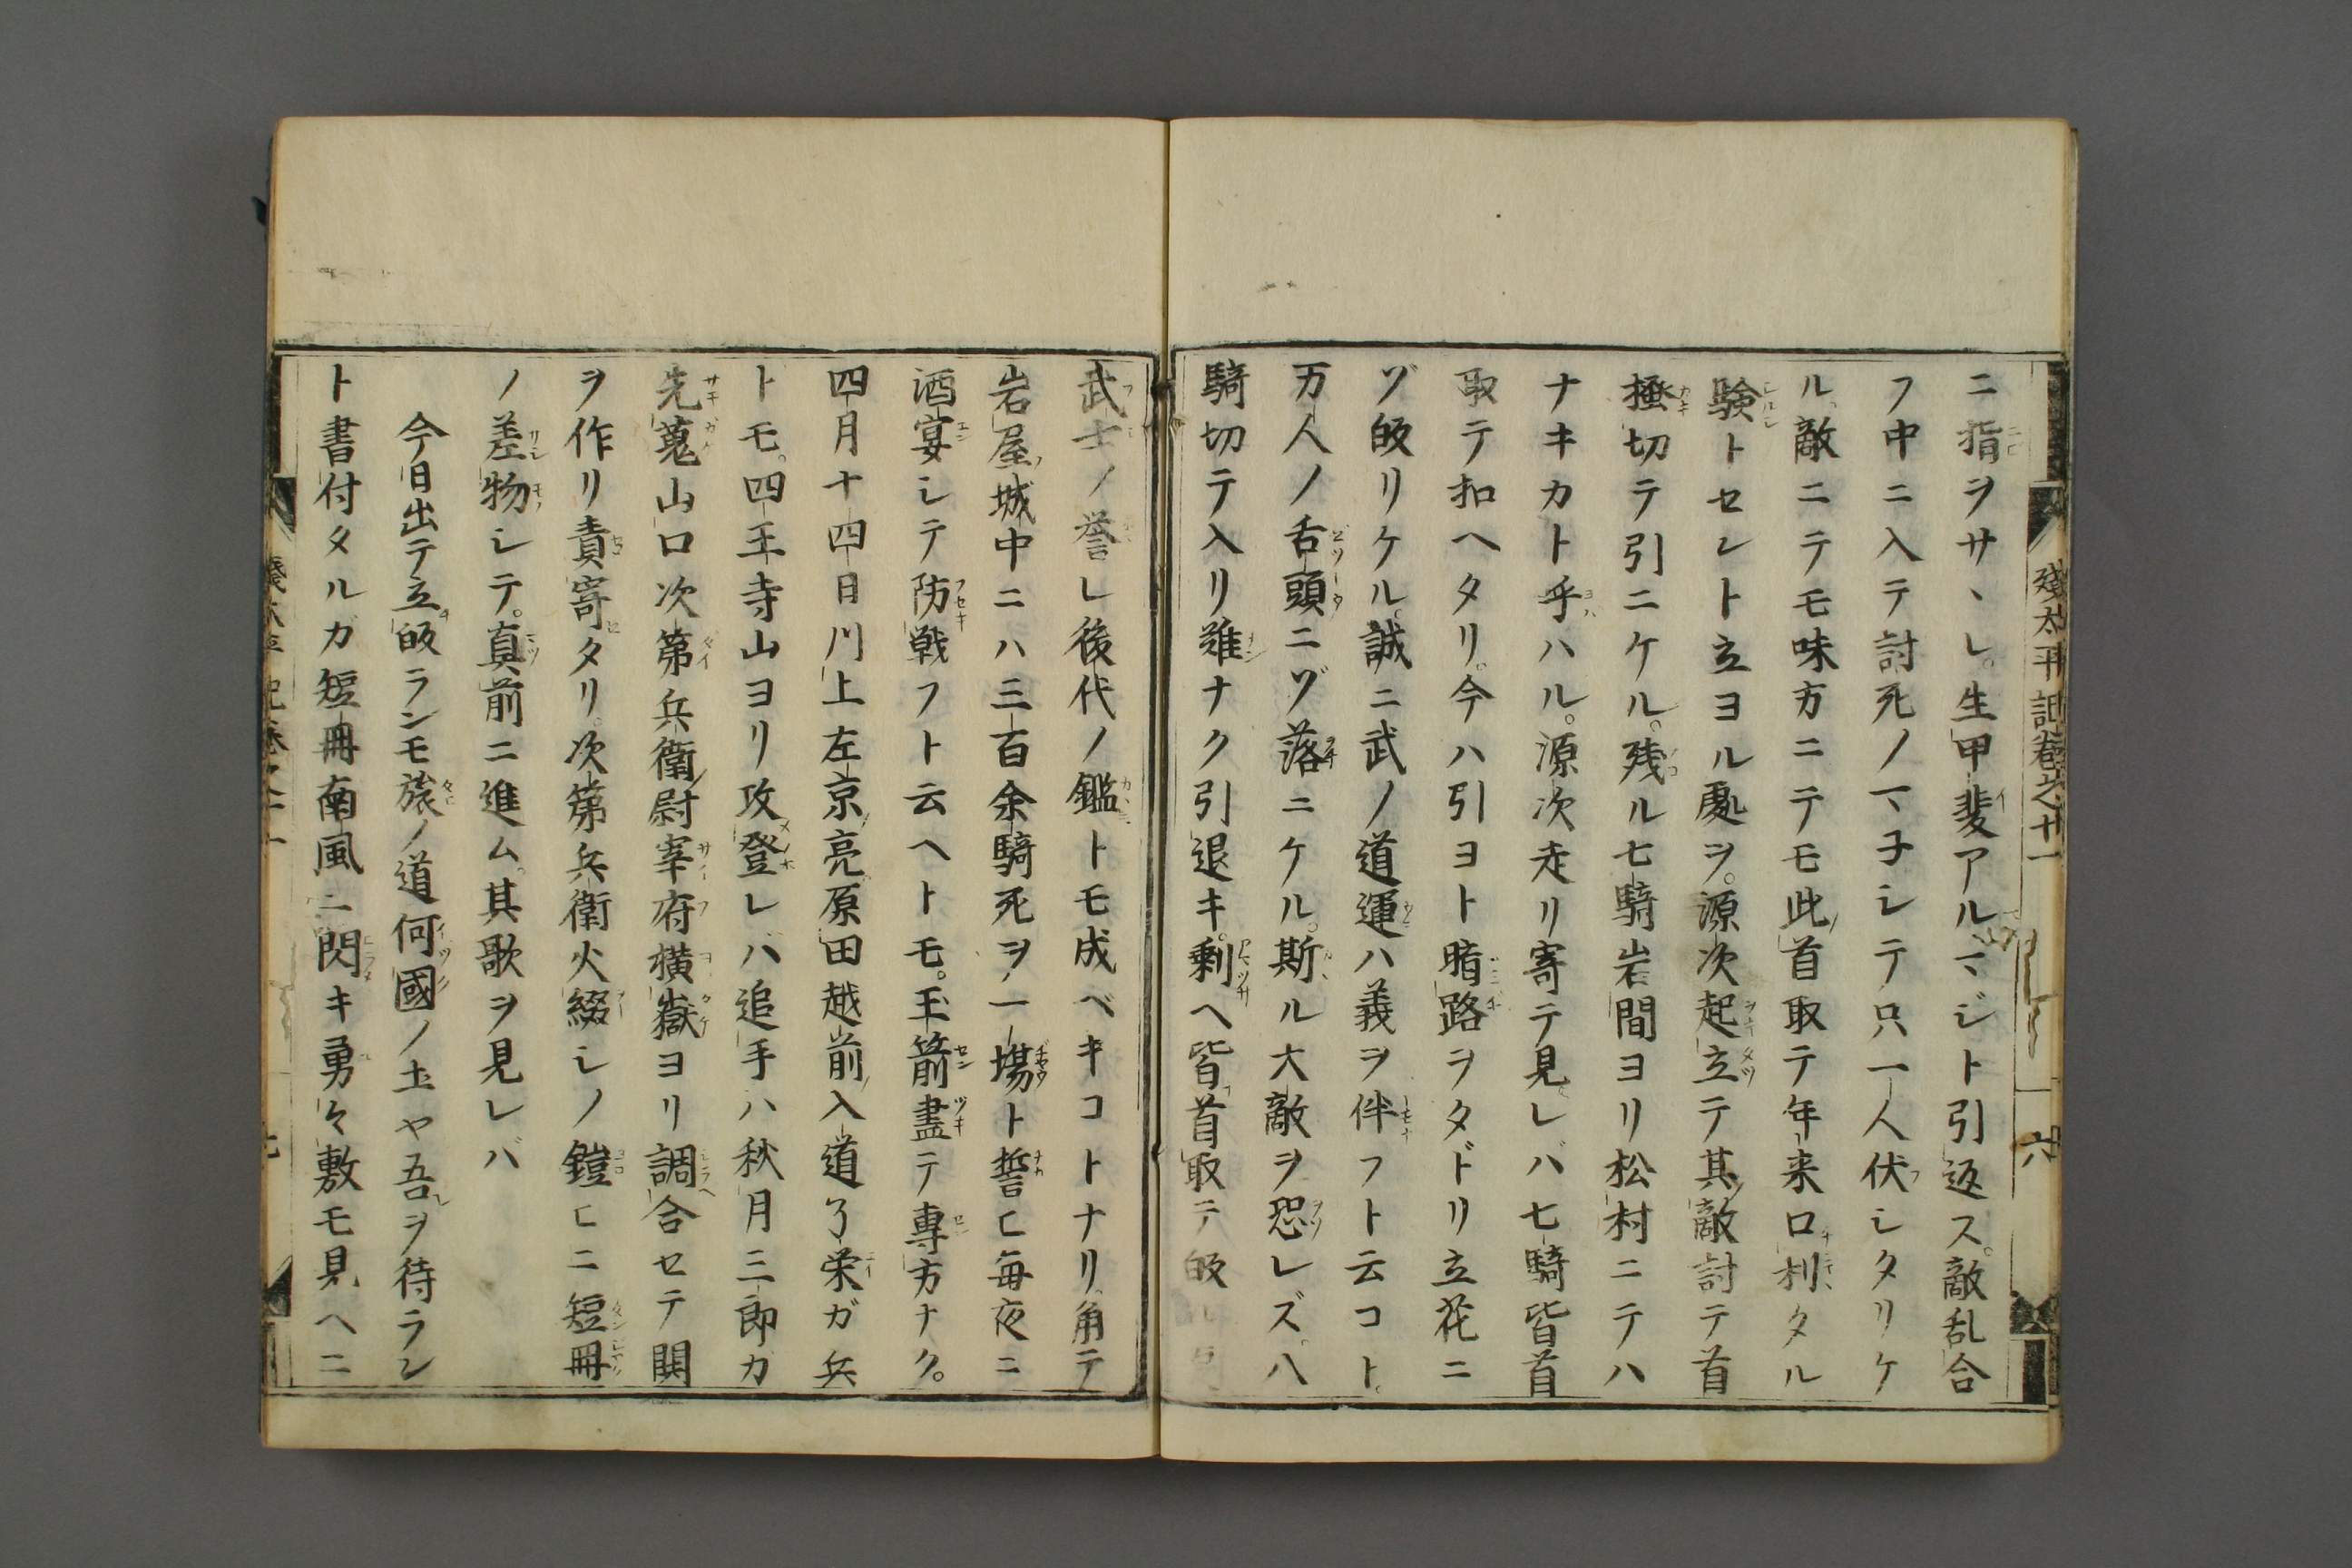 ニ指ヲサヽレ。生甲斐アルマジト引返ス。敵乱合
フ中ニ入テ討死ノマ子シテ只一人伏シタリケ
ル。敵ニテモ味方ニテモ此首取テ年来口利タル
験トセント立ヨル處ヲ。源次起立テ其敵討テ首
掻切テ引ニケル。残ル七騎岩間ヨリ松村ニテハ
ナキカト乎ハル。源次走リ寄テ見レバ七騎皆首
取テ扣ヘタリ。今ハ引ヨト暗路ヲタドリ立花ニ
ゾ皈リケル。誠ニ武ノ道運ハ義ヲ伴フト云コト。
万人ノ舌頭ニゾ落ニケル。斯ル大敵ヲ恐レズ。八
騎切テ入リ難ナク引退キ。剰ヘ皆首取テ皈
武士ノ誉レ後代ノ鑑トモ成ベキコトナリ。角テ
岩屋城中ニハ三百余騎死ヲ一場ト誓ヒ毎夜ニ
酒宴シテ防戦フト云ヘトモ。玉箭盡テ専方ナク。
四月十四日川上左京亮原田越前入道了栄ガ兵
トモ。四王寺山ヨリ攻登レバ追手ハ秋月三郎カ
先蒐山口次第兵衛尉宰府横嶽ヨリ調合セテ関
ヲ作リ責寄タリ。次第兵衛火綴シノ鎧ヒニ短冊
ノ差物シテ。真前ニ進ム。其歌ヲ見レバ
今日出テ立皈ランモ旅ノ道何國ノ土ヤ吾ヲ待ラン
ト書付タルガ短冊南風ニ閃キ勇々敷モ見ヘニ
残太平記巻之廿一
六